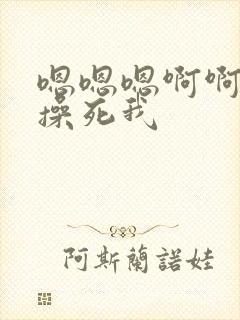 嗯嗯嗯啊啊
操死我
阿斯蘭諾娃